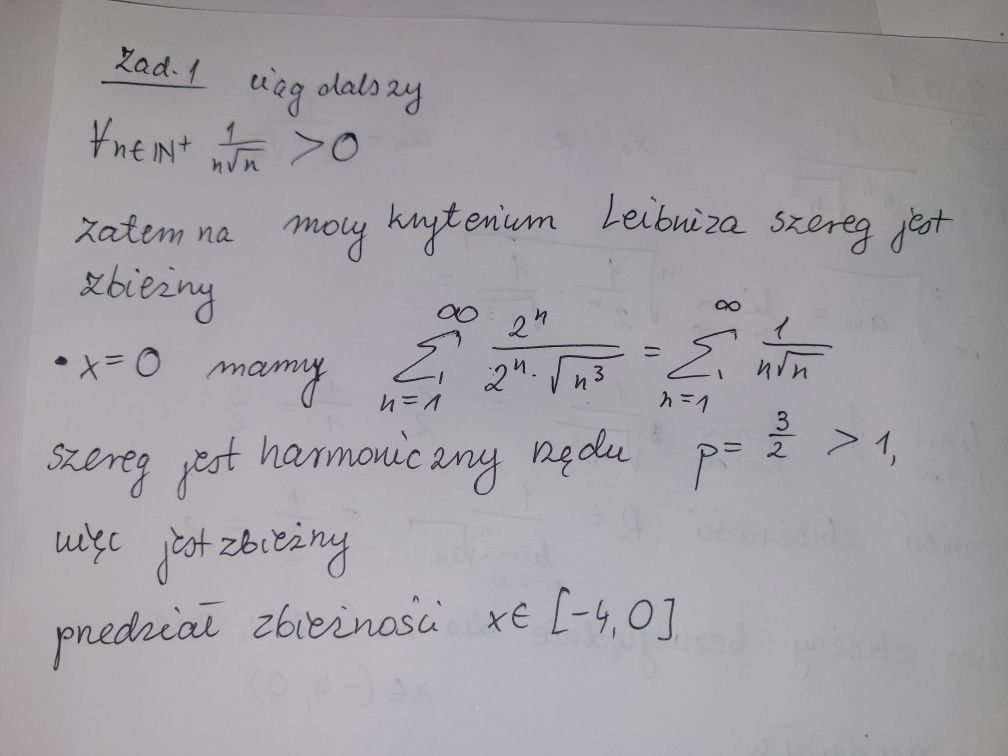 Zad. 1 ciąg dalszy
∀n∈ℕ⁺ 1/(n√n) > 0
zatem na mocy kryterium Leibniza szereg jest
zbieżny
• x = 0 mamy ∑_{n=1}^{∞} 2ⁿ/(2ⁿ · √(n³)) = ∑_{n=1}^{∞} 1/(n√n)
szereg jest harmoniczny rzędu p = 3/2 > 1,
więc jest zbieżny
przedział zbieżności x ∈ [-4, 0]